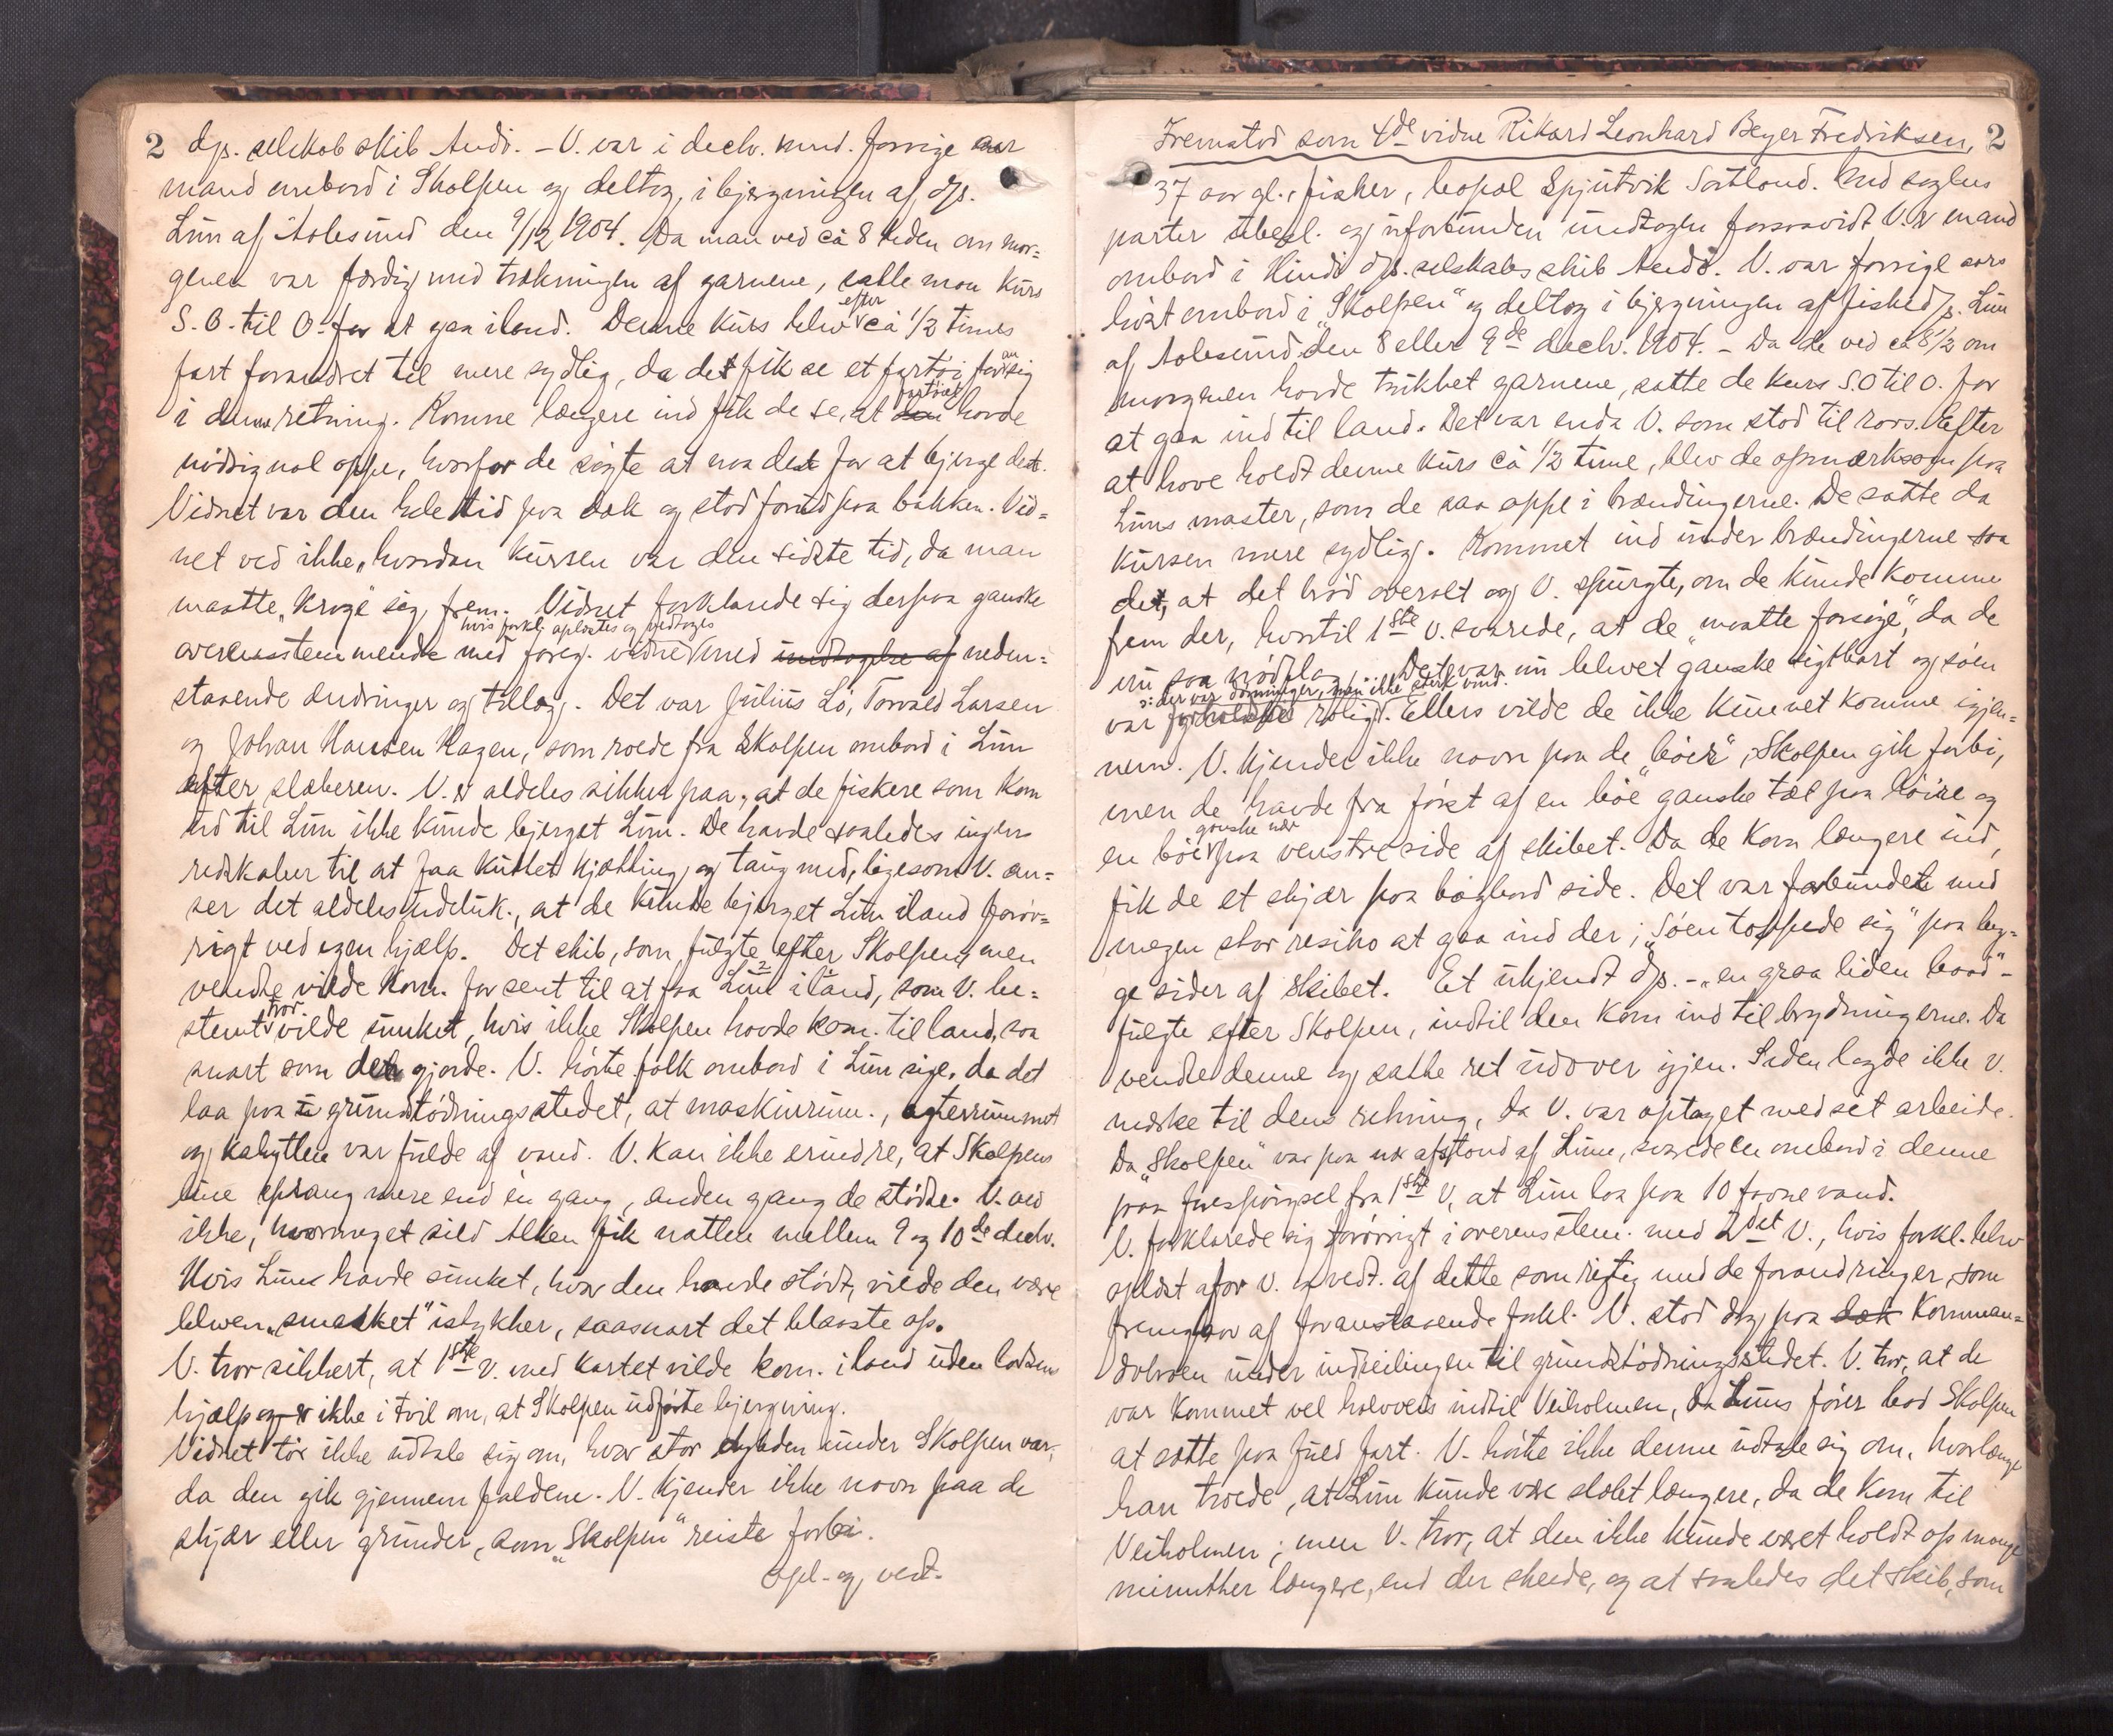 2 dps. selskob skib Andö. - V. var i decb. mnd. forrige aar
mand ombord i Skolpen og deltog i bjergningen af d/ps.
Lim af Aalesund den 9/12 1904. Da man ved cà 8 tiden om mor=
genen var færdig med trækningen af garnene, satte man kurs
S.O. til O. for at gaa iland. Denne kurs blev efter cà 1/2 times
fart forandret til mere sydlig, da det fik se et fartöi foran sig
i denne retning. Komne længere ind fik de se, at fartöiet havde
nödsignal oppe, hvorfor de sögte at naa det for at bjerge det.
Vidnet var den hele tid paa dæk og stod forud paa bakken. Vid=
net ved ikke, hvordan kursen var den sidste tid, da man
maatte "kroge" sig frem. Vidnet forklarede sig derpaa ganske
hvis forkl. oplæstes og vedtoges
overensstemmende med foreg. vidne med undtagelse af neden=
staaende ændringer og tillæg. Det var Julius Lö, Torvald Larsen
og Johan Hansen Hagen, som roede fra Skolpen ombord i Lim
efter slæberen. V. er aldeles sikker paa, at de fiskere som kom
ud til Lim ikke kunde bjerget Lim. De havde saaledes ingen
redskaber til at faa kuttet kjætting og taug med, ligesom V. an=
ser det aldeles udeluk., at de kunde bjerget Lim iland forøv=
rigt ved egen hjælp. Det skib, som fulgte efter Skolpen, men
vendte vilde kom. for sent til at faa Lim iland, som V. be=
stemt tror vilde sunket, hvis ikke Skolpen havde kom. til land, saa
snart som den gjorde. V. hörte folk ombord i Lim sige, da det
laa paa grundstödningsstedet, at maskinrum., agterrummet
og kahytten var fulde af vand. V. kan ikke erindre, at Skolpens
line sprang mere end én gang, anden gang de stödte. V. ved
ikke, hvormeget sild Alken fik natten mellem 9 og 10de decb.
Hvis Lim havde sunket, hvor den havde stödt, vilde den være
bleven "smasket" istykker, saasnart det blæste op.
V. tror sikkert, at 1ste V. med kartet vilde kom. iland uden lodsens
hjælp og er ikke i tvil om, at Skolpen udförte bjergning.
Vidnet tör ikke udtale sig om, hvor stor dybden under Skolpen var,
da den gik gjennem faldene. V. kjender ikke navn paa de
skjær eller grunder, som "Skolpen" reiste forbi.
Opl. og vedt.
Fremstod som 4de vidne Rikard Leonhard Beyer Fredriksen, 2
37 aar gl., fisker, bopæl Spjutvik Sortland. Med sagens
parter ubesl. og uforbunden undtagen forsaavidt V. er mand
ombord i Hindö dps. selskabs skib Andö. V. var forrige aars
höst ombord i "Skolpen" og deltog i bjergningen af fiskedps. Lim
af Aalesund den 8 eller 9de decb. 1904. - Da de ved cà 8 1/2 om
morgenen havde trukket garnene, satte de kurs S.O til O. for
at gaa ind til land. Det var enda V. som stod til rors. Efter
at have holdt denne kurs cà 1/2 time, blev de opmærksom paa
Lims master, som de saa oppe i brændingerne. De satte da
kursen mere sydlig. Kommet ind under brændingerne saa
det, at det bröd overalt og V. spurgte, om de kunde komme
frem der, hvortil 1ste V. svarede, at de "maatte forsöge", da de
nu saa nödflag. Dete var nu blevet ganske sigtbart og söen
ɔ: der var dönninger, men ikke sterk vind.
var forholdsvis roligt. Ellers vilde de ikke kunnet komme igjen=
nem. V. kjender ikke navn paa de "böer", Skolpen gik forbi,
men de havde fra först af en böe ganske tæt paa höire og
en böe ganske nær paa venstre side af skibet. Da de kom længere ind,
fik de et skjær paa bagbord side. Det var forbundet med
megen stor resiko at gaa ind der; "Söen toppede sig" paa beg=
ge sider af skibet. Et ukjendt dps. - "en graa liden baad" -
fulgte efter Skolpen, indtil den kom ind til brydningerne. Da
vendte denne og satte ret udover igjen. Siden lagde ikke V.
merke til dens retning, da V. var optaget med sit arbeide.
Da "Skolpen" var paa nær afstand af Lim, svarede en ombord i denne
paa forespörgsel fra 1ste V, at Lim laa paa 10 favne vand.
V. forklarede sig forøvrigt i overensstem. med 2det V., hvis forkl. blev
oplæst for V. og vedt. af dette som rigtig med de forandringer, som
fremgaar af foranstaaende forkl. V. stod dog paa dæk Komman=
dobroen under indseilingen til grundstödningsstedet. V. tror, at de
var kommet vel halvveis indtil Veiholmen, da Lims förer bad Skolpen
at sætte paa fuld fart. V. hörte ikke denne udtale sig om, hvorlænge
han troede, at Lim kunde være slæbt længere, da de kom til
Veiholmen; men V. tror, at den ikke kunde været holdt op mange
minutter længere, end der skede, og at saaledes det skib, som